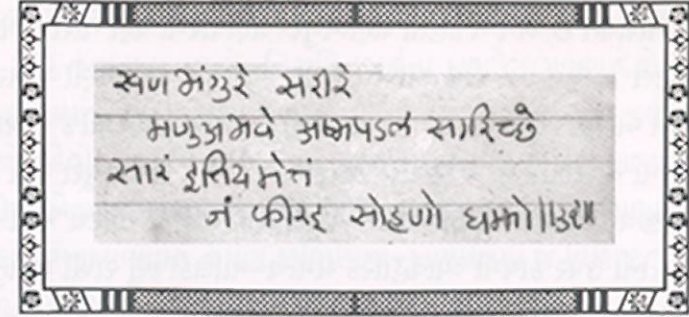 खण भंगुरे सरीरे
मणुअभवे अब्भपडल सारिच्छे
सारं इत्तियमेत्तं
जं कीरइ सोहणो धम्मो